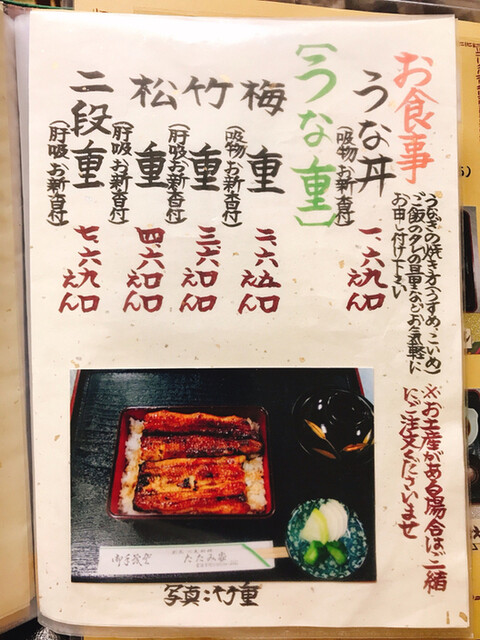 お食事
うな丼
(吸物 お新香付)
一、六九〇えん
うなぎの焼き方(うすめ、こいめ)
ご飯のタレの量などお気軽に
お申し付け下さい
※お土産がある場合はご一緒
にご注文くださいませ
【うな重】
梅重
(吸物 お新香付)
二、六五〇えん
竹重
(肝吸 お新香付)
三、六〇〇えん
松重
(肝吸 お新香付)
四、六〇〇えん
二段重
(肝吸 お新香付)
七、六九〇えん
たたみ家
写真:竹重